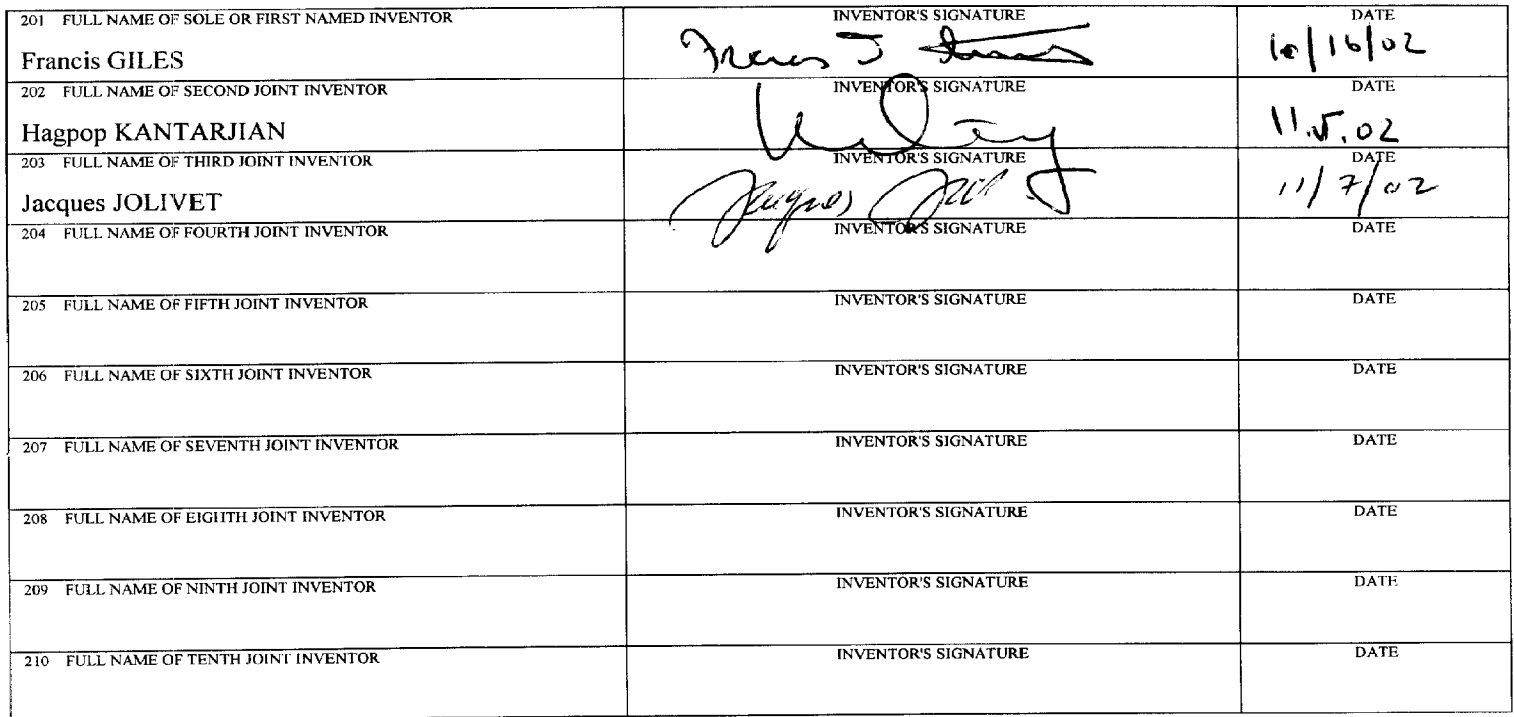 201 FULL NAME OF SOLE OR FIRST NAMED INVENTOR INVENTOR'S SIGNATURE DATE
Francis GILES 10/16/02
202 FULL NAME OF SECOND JOINT INVENTOR INVENTOR'S SIGNATURE DATE
Hagpop KANTARJIAN 11.5.02
203 FULL NAME OF THIRD JOINT INVENTOR INVENTOR'S SIGNATURE DATE
Jacques JOLIVET Jacques 11/7/02
204 FULL NAME OF FOURTH JOINT INVENTOR INVENTOR'S SIGNATURE DATE
205 FULL NAME OF FIFTH JOINT INVENTOR INVENTOR'S SIGNATURE DATE
206 FULL NAME OF SIXTH JOINT INVENTOR INVENTOR'S SIGNATURE DATE
207 FULL NAME OF SEVENTH JOINT INVENTOR INVENTOR'S SIGNATURE DATE
208 FULL NAME OF EIGHTH JOINT INVENTOR INVENTOR'S SIGNATURE DATE
209 FULL NAME OF NINTH JOINT INVENTOR INVENTOR'S SIGNATURE DATE
210 FULL NAME OF TENTH JOINT INVENTOR INVENTOR'S SIGNATURE DATE